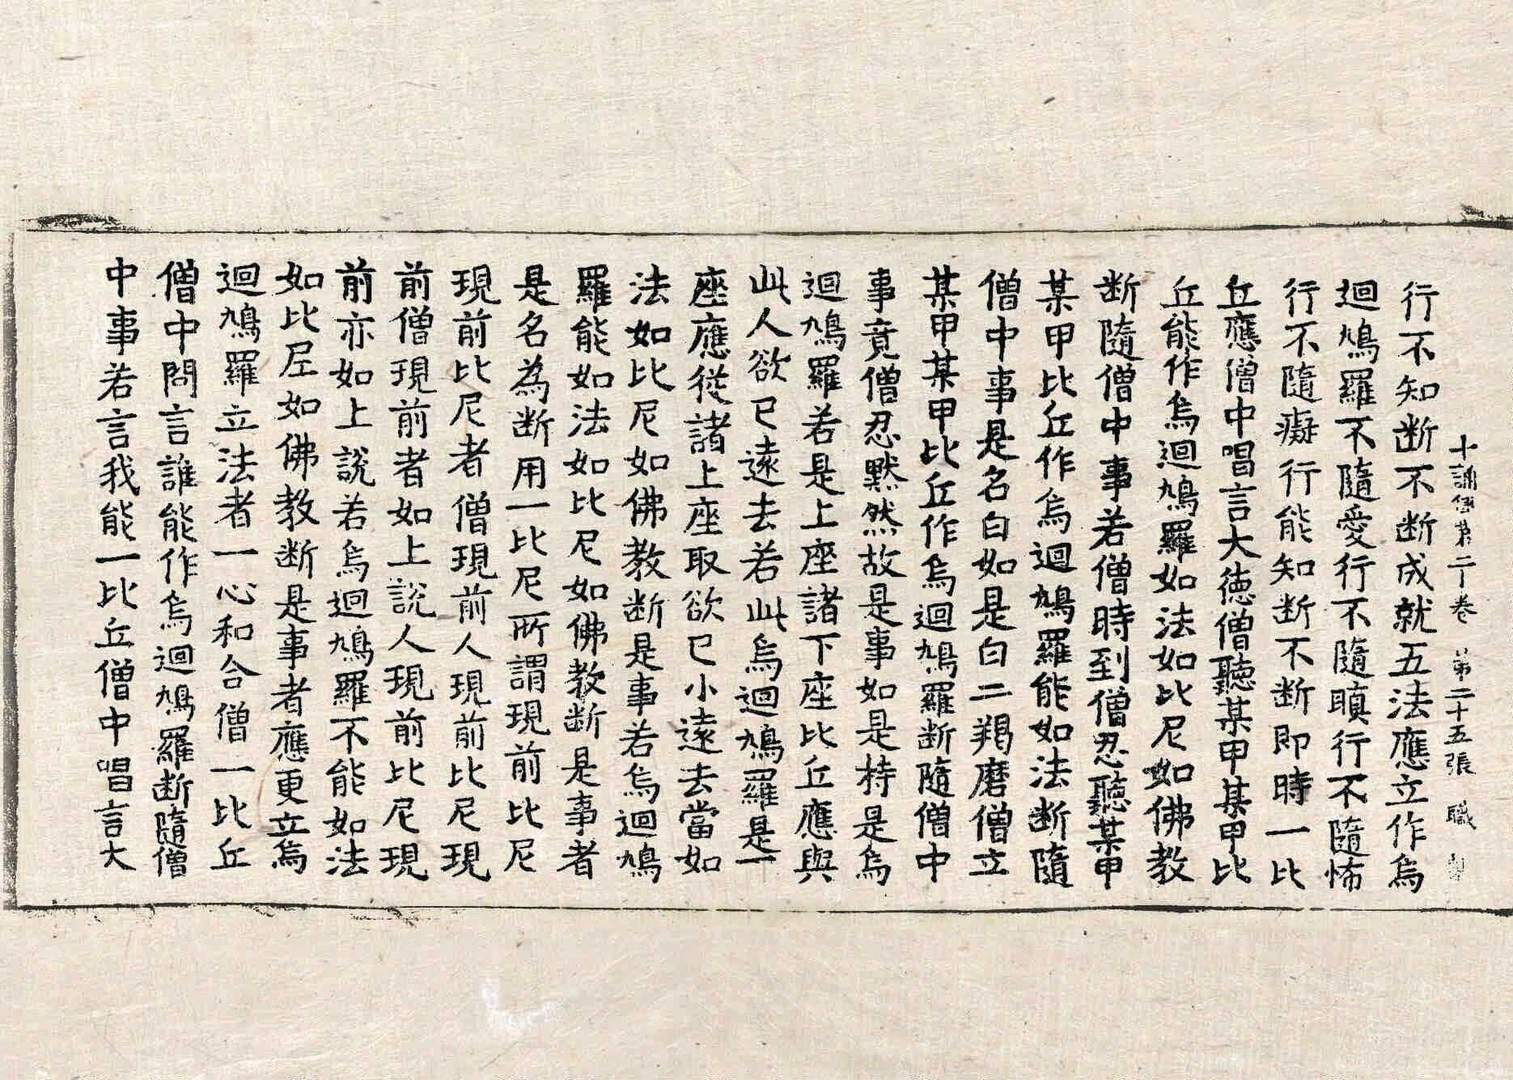 十誦律第二十卷　第二十五張　職
行不知断不断成就五法應立作烏
迴鳩羅不隨愛行不隨瞋行不隨怖
行不隨癡行能知断不断即時一比
丘應僧中唱言大德僧聽某甲某甲比
丘能作烏迴鳩羅如法如比尼如佛教
断隨僧中事若僧時到僧忍聽某甲
某甲比丘作烏迴鳩羅能如法断隨
僧中事是名白如是白二羯磨僧立
某甲某甲比丘作烏迴鳩羅断隨僧中
事竟僧忍黙然故是事如是持是烏
迴鳩羅若是上座諸下座比丘應與
此人欲已遠去若此烏迴鳩羅是下
座應從諸上座取欲已小遠去當如
法如比尼如佛教断是事若烏迴鳩
羅能如法如比尼如佛教断是事者
是名為断用一比尼所謂現前比尼
現前比尼者僧現前人現前比尼現
前僧現前者如上說人現前比尼現
前亦如上說若烏迴鳩羅不能如法
如比尼如佛教断是事者應更立烏
迴鳩羅立法者一心和合僧一比丘
僧中問言誰能作烏迴鳩羅断隨僧
中事若言我能一比丘僧中唱言大